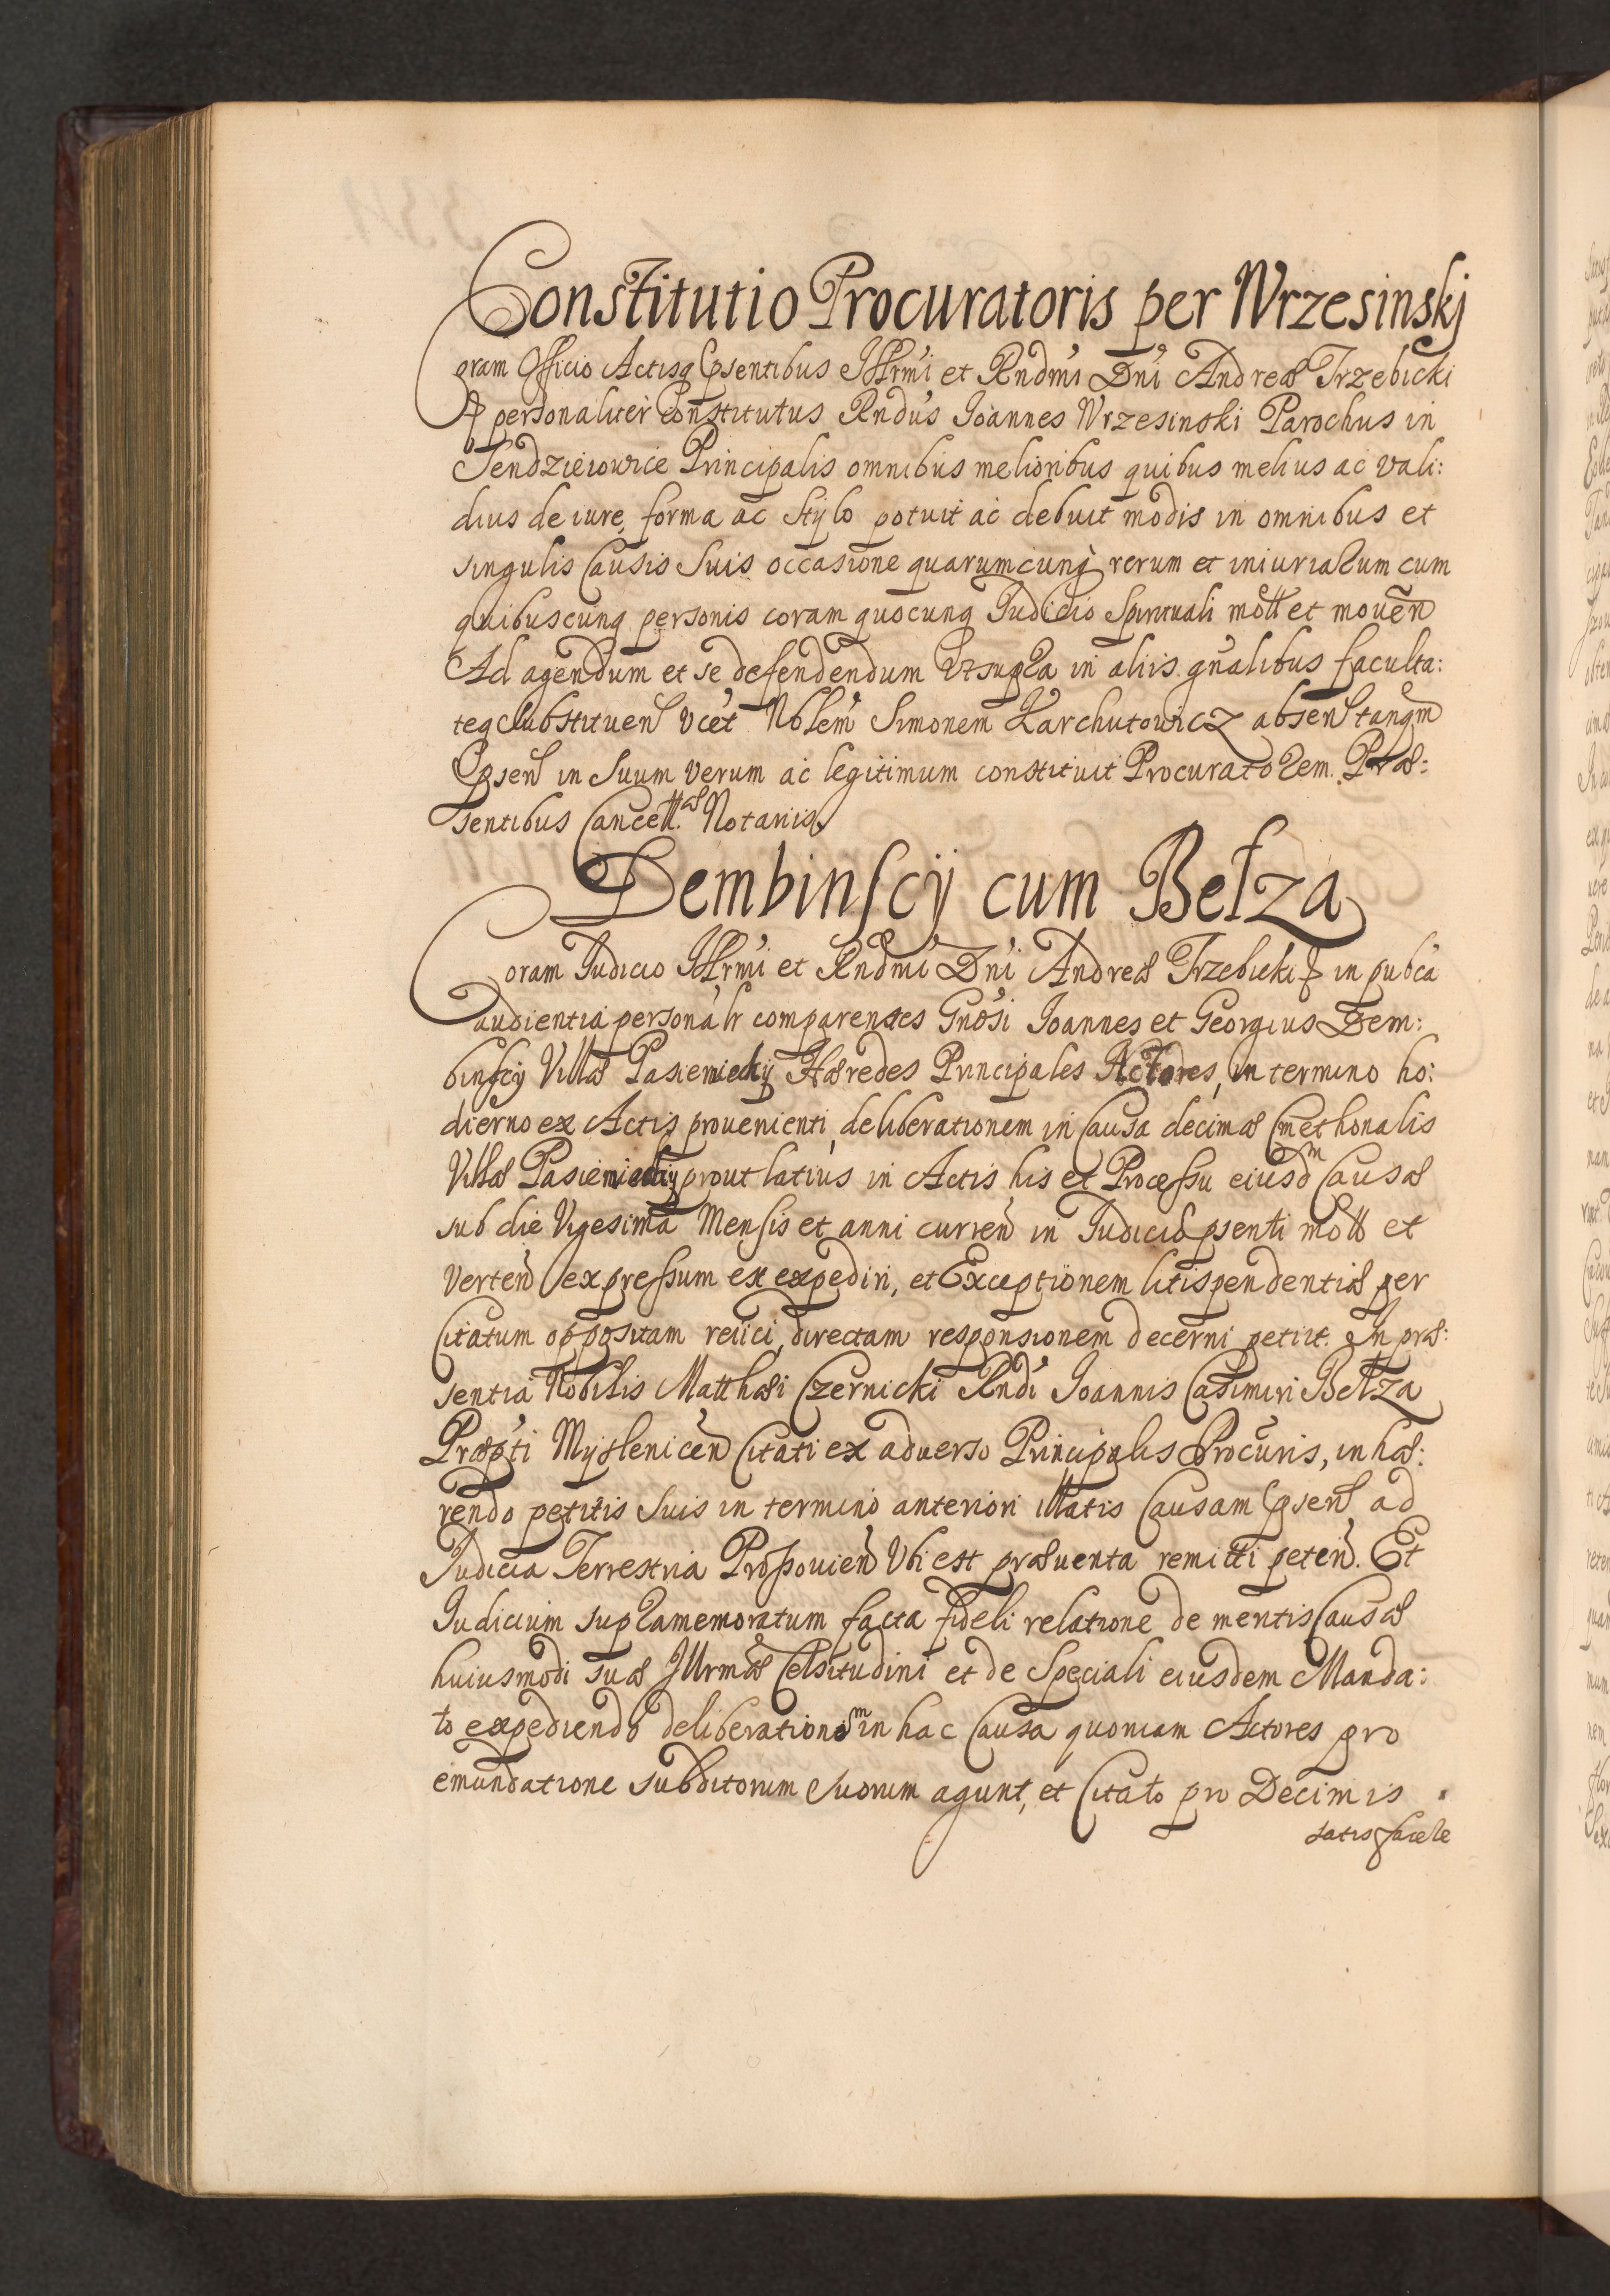 Constitutio Procuratoris per Wrzesinskj
Coram Officio Actisq psentibus Illrmi et Rndmi Dni Andreæ Trzebicki
personaliter Constitutus Rndus Joannes Wrzesinski Parochus in
Sendzieiowice Principalis omnibus melioribus quibus melius ac vali:
dius de iure, forma ac Stylo potuit ac debuit modis in omnibus et
singulis Causis Suis occasione quarumcunq rerum et iniuriarum cum
quibuscunq personis coram quocunq Judicio Spirituali mott et mouen
Ad agendum et se defendendum Vt supra in aliis gnalibus faculta:
teq Substituen vcet Noblem Simonem Karchutowicz absen tanqm
psen in Suum verum ac legitimum constituit Procuratorem. Præ:
sentibus Cancell.æ Notariis.
Dembinscÿ cum Bełza
Coram Judicio Illrmi et Rndmi Dni Andreæ Trzebicki in pubca
audientia personalr comparentes Gnosi Joannes et Georgius Dem:
binscÿ Villæ Pasieniechÿ Hæredes Principales Actores, in termino ho:
dierno ex Actis prouenienti, deliberationem in Causa decimæ Cmethonalis
Villæ Pasieniechÿ prout latius in Actis his et Processu eiusdm Causæ
sub die Vigesima Mensis et anni curren in Judicio psenti mott et
verten expressum ex expediri, et Exceptionem litispendentiæ per
Citatum oppositam reiici, directam responsionem decerni petiit. In præ:
sentia Nobilis Matthæi Czernicki Rndi Joannis Casimiri Bełza
Præpti Myslenicen Citati ex aduerso Principalis Procuris, in hæ:
rendo petitis Suis in termino anteriori illatis Causam psen ad
Judicia Terrestria Prossouien Vbi est præuenta remitti peten. Et
Judicium supramemoratum facta fideli relatione de mentis Causæ
huiusmodi suæ Illrmæ Celsitudini et de Speciali eiusdem Manda:
to expediendo deliberationem in hac Causa quoniam Actores pro
emundatione subditorum Suorum agunt, et Citato pro Decimis
satisfacere